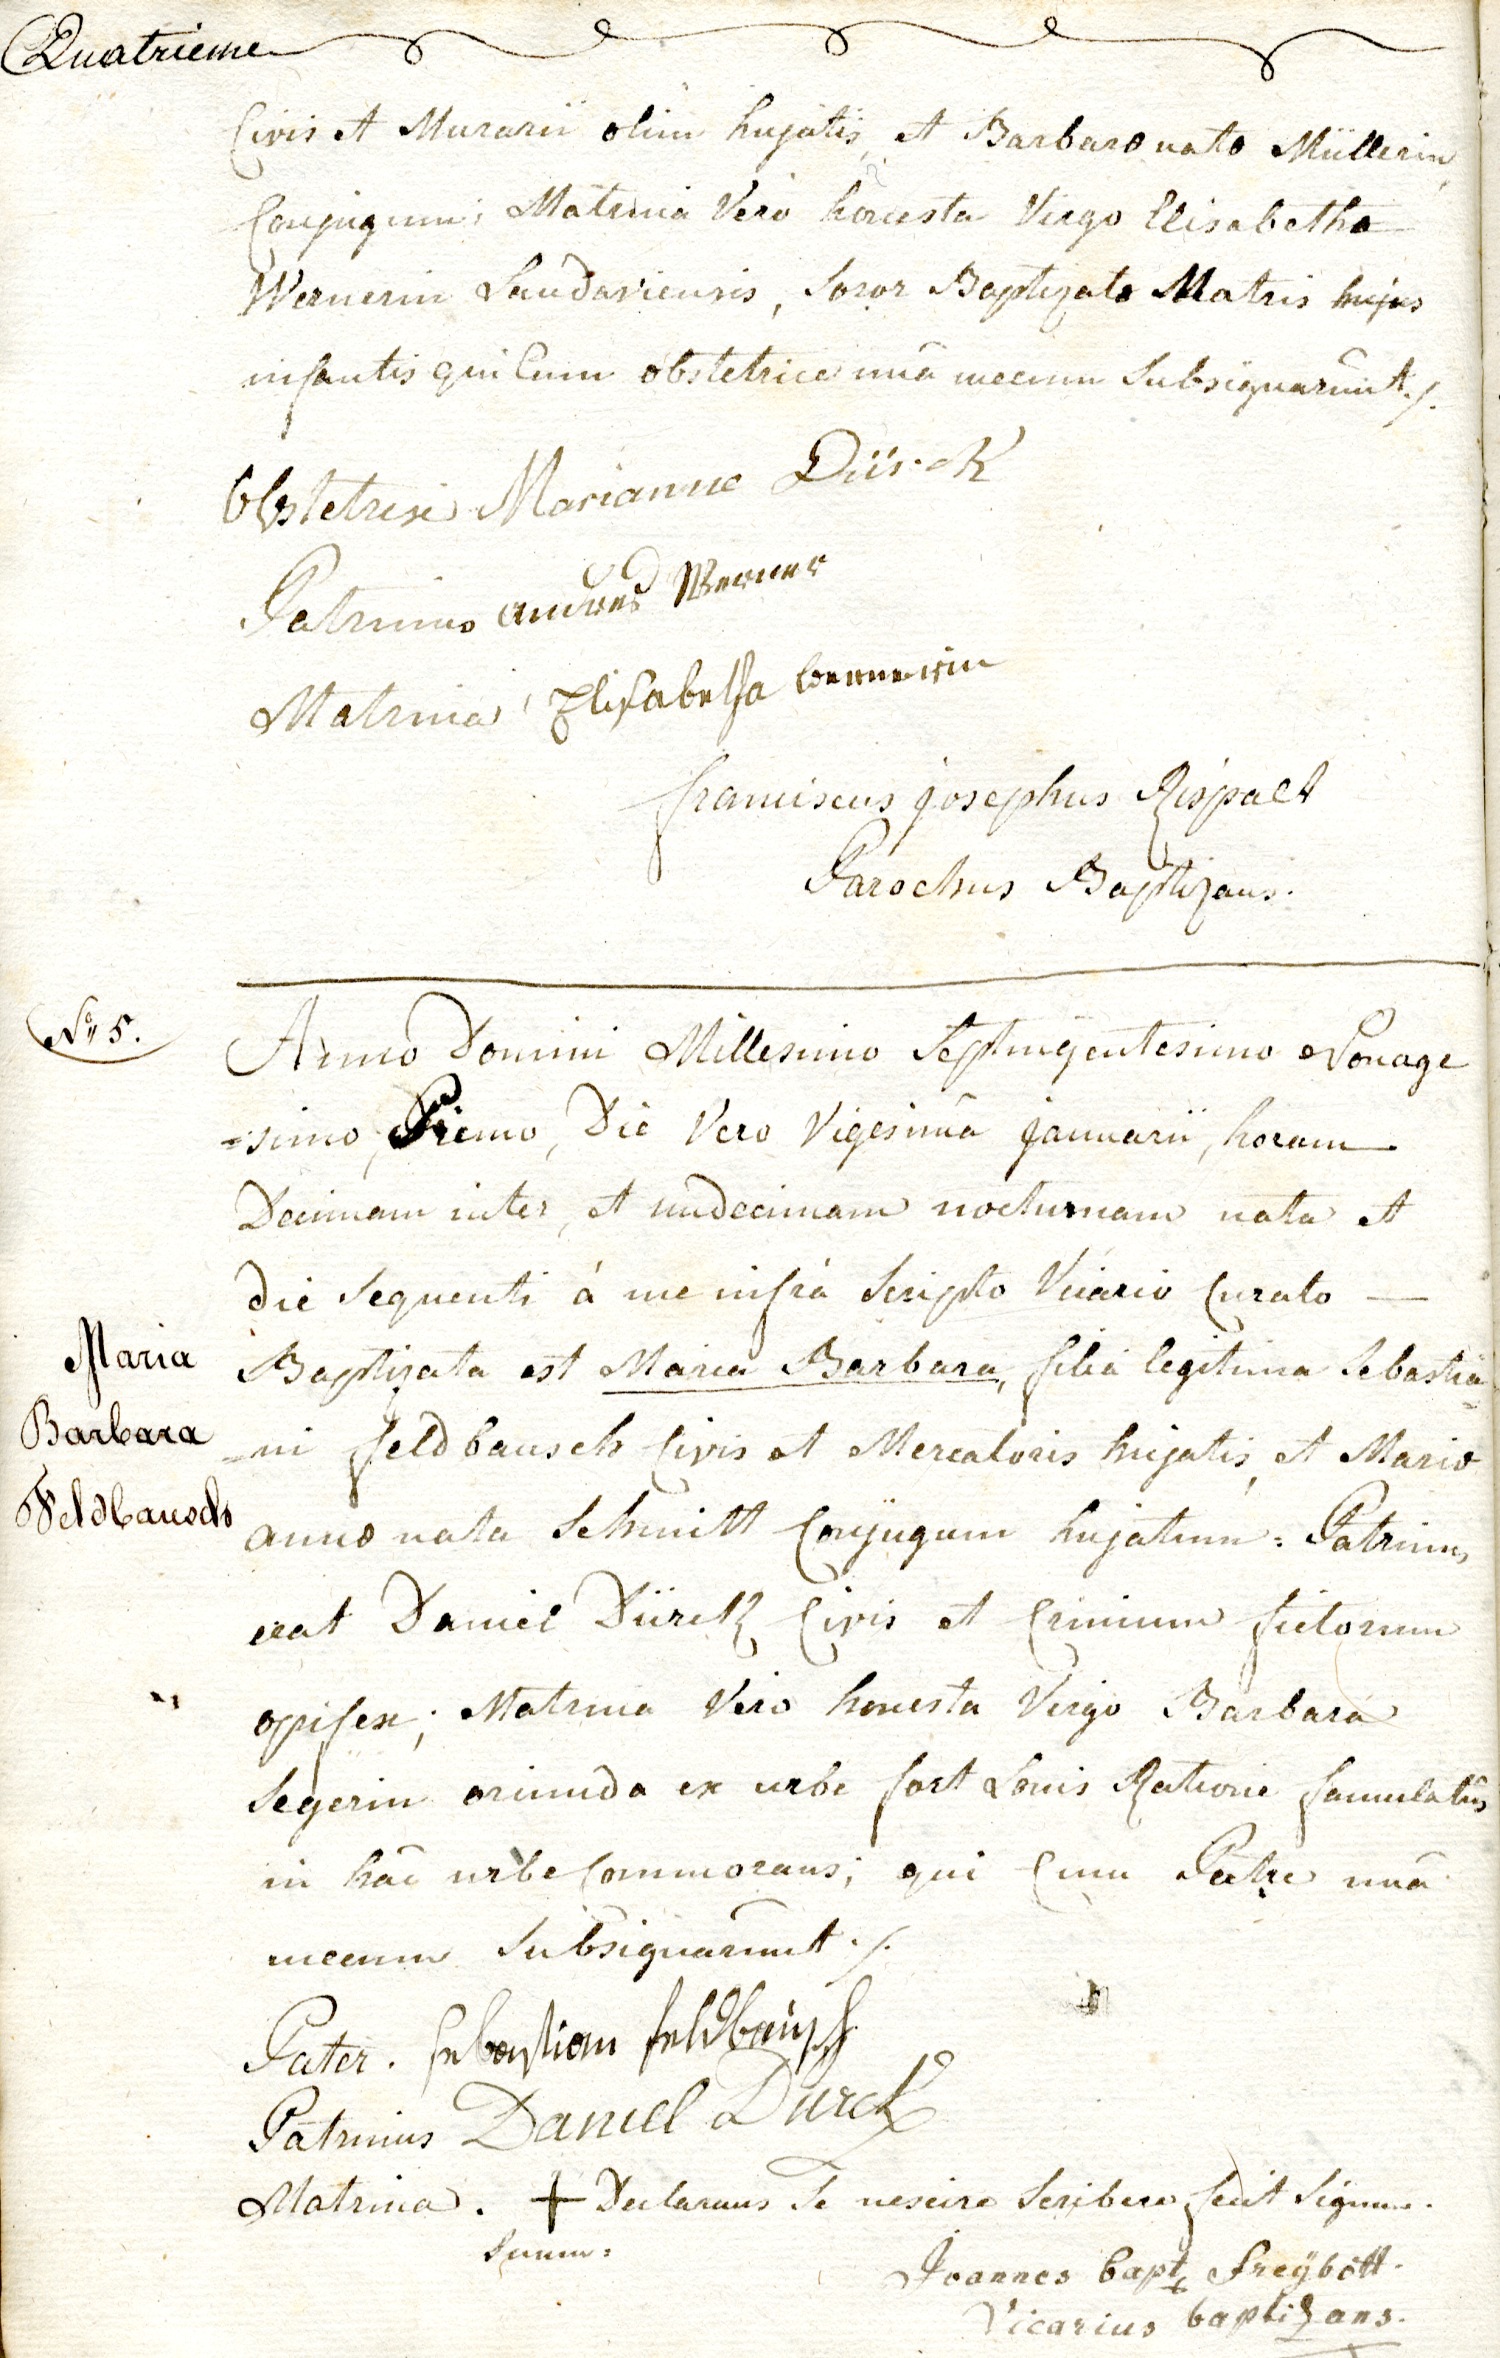 Quatrieme
Civis et Murarii olim hujatis, et Barbara nata Müllerin
Conjugum; Matrina Vero honesta Virgo Elisabetha
Wernerin Landaviensis, Soror Baptizata Matris hujus
infantis qui Cum obstetrice unâ mecum Subsignarunt ./.
Obstetrix Marianne Dürck
Patrinus andres Werner
Matrina Elisabetha Wernerin
franciscus josephus Rispalt
Parochus Baptizans.
No 5.
Anno Domini Millesimo Septingentesimo Nonage
=simo, Primo, Die Vero Vigesimâ januarii, horam
Decimam inter, et undecimam nocturnam nata et
die Sequenti á me infrà Scripto Vicario Curato —
Maria
Baptizata est Maria Barbara, filia legitima Sebastia
Barbara
=ni feldbausch Civis et Mercatoris hujatis, et Maria
Feldbausch
anna nata Schmitt Conjugum hujatum: Patrinus
erat Daniel Dürck Civis et Crinium fictorum
opifex; Matrina Vero honesta Virgo Barbara
Segerin oriunda ex urbe fort Louis Ratione famulatûs
in hâc urbe Commorans; qui Cum Patre unâ
mecum Subsignarunt ./.
Pater. sebastian feldbausch
Patrinus Daniel Dürck
Matrina. + Declarans Se nescire Scribere fecit Signum
Suum:
Joannes bapt. Freÿbott.
Vicarius baptizans.